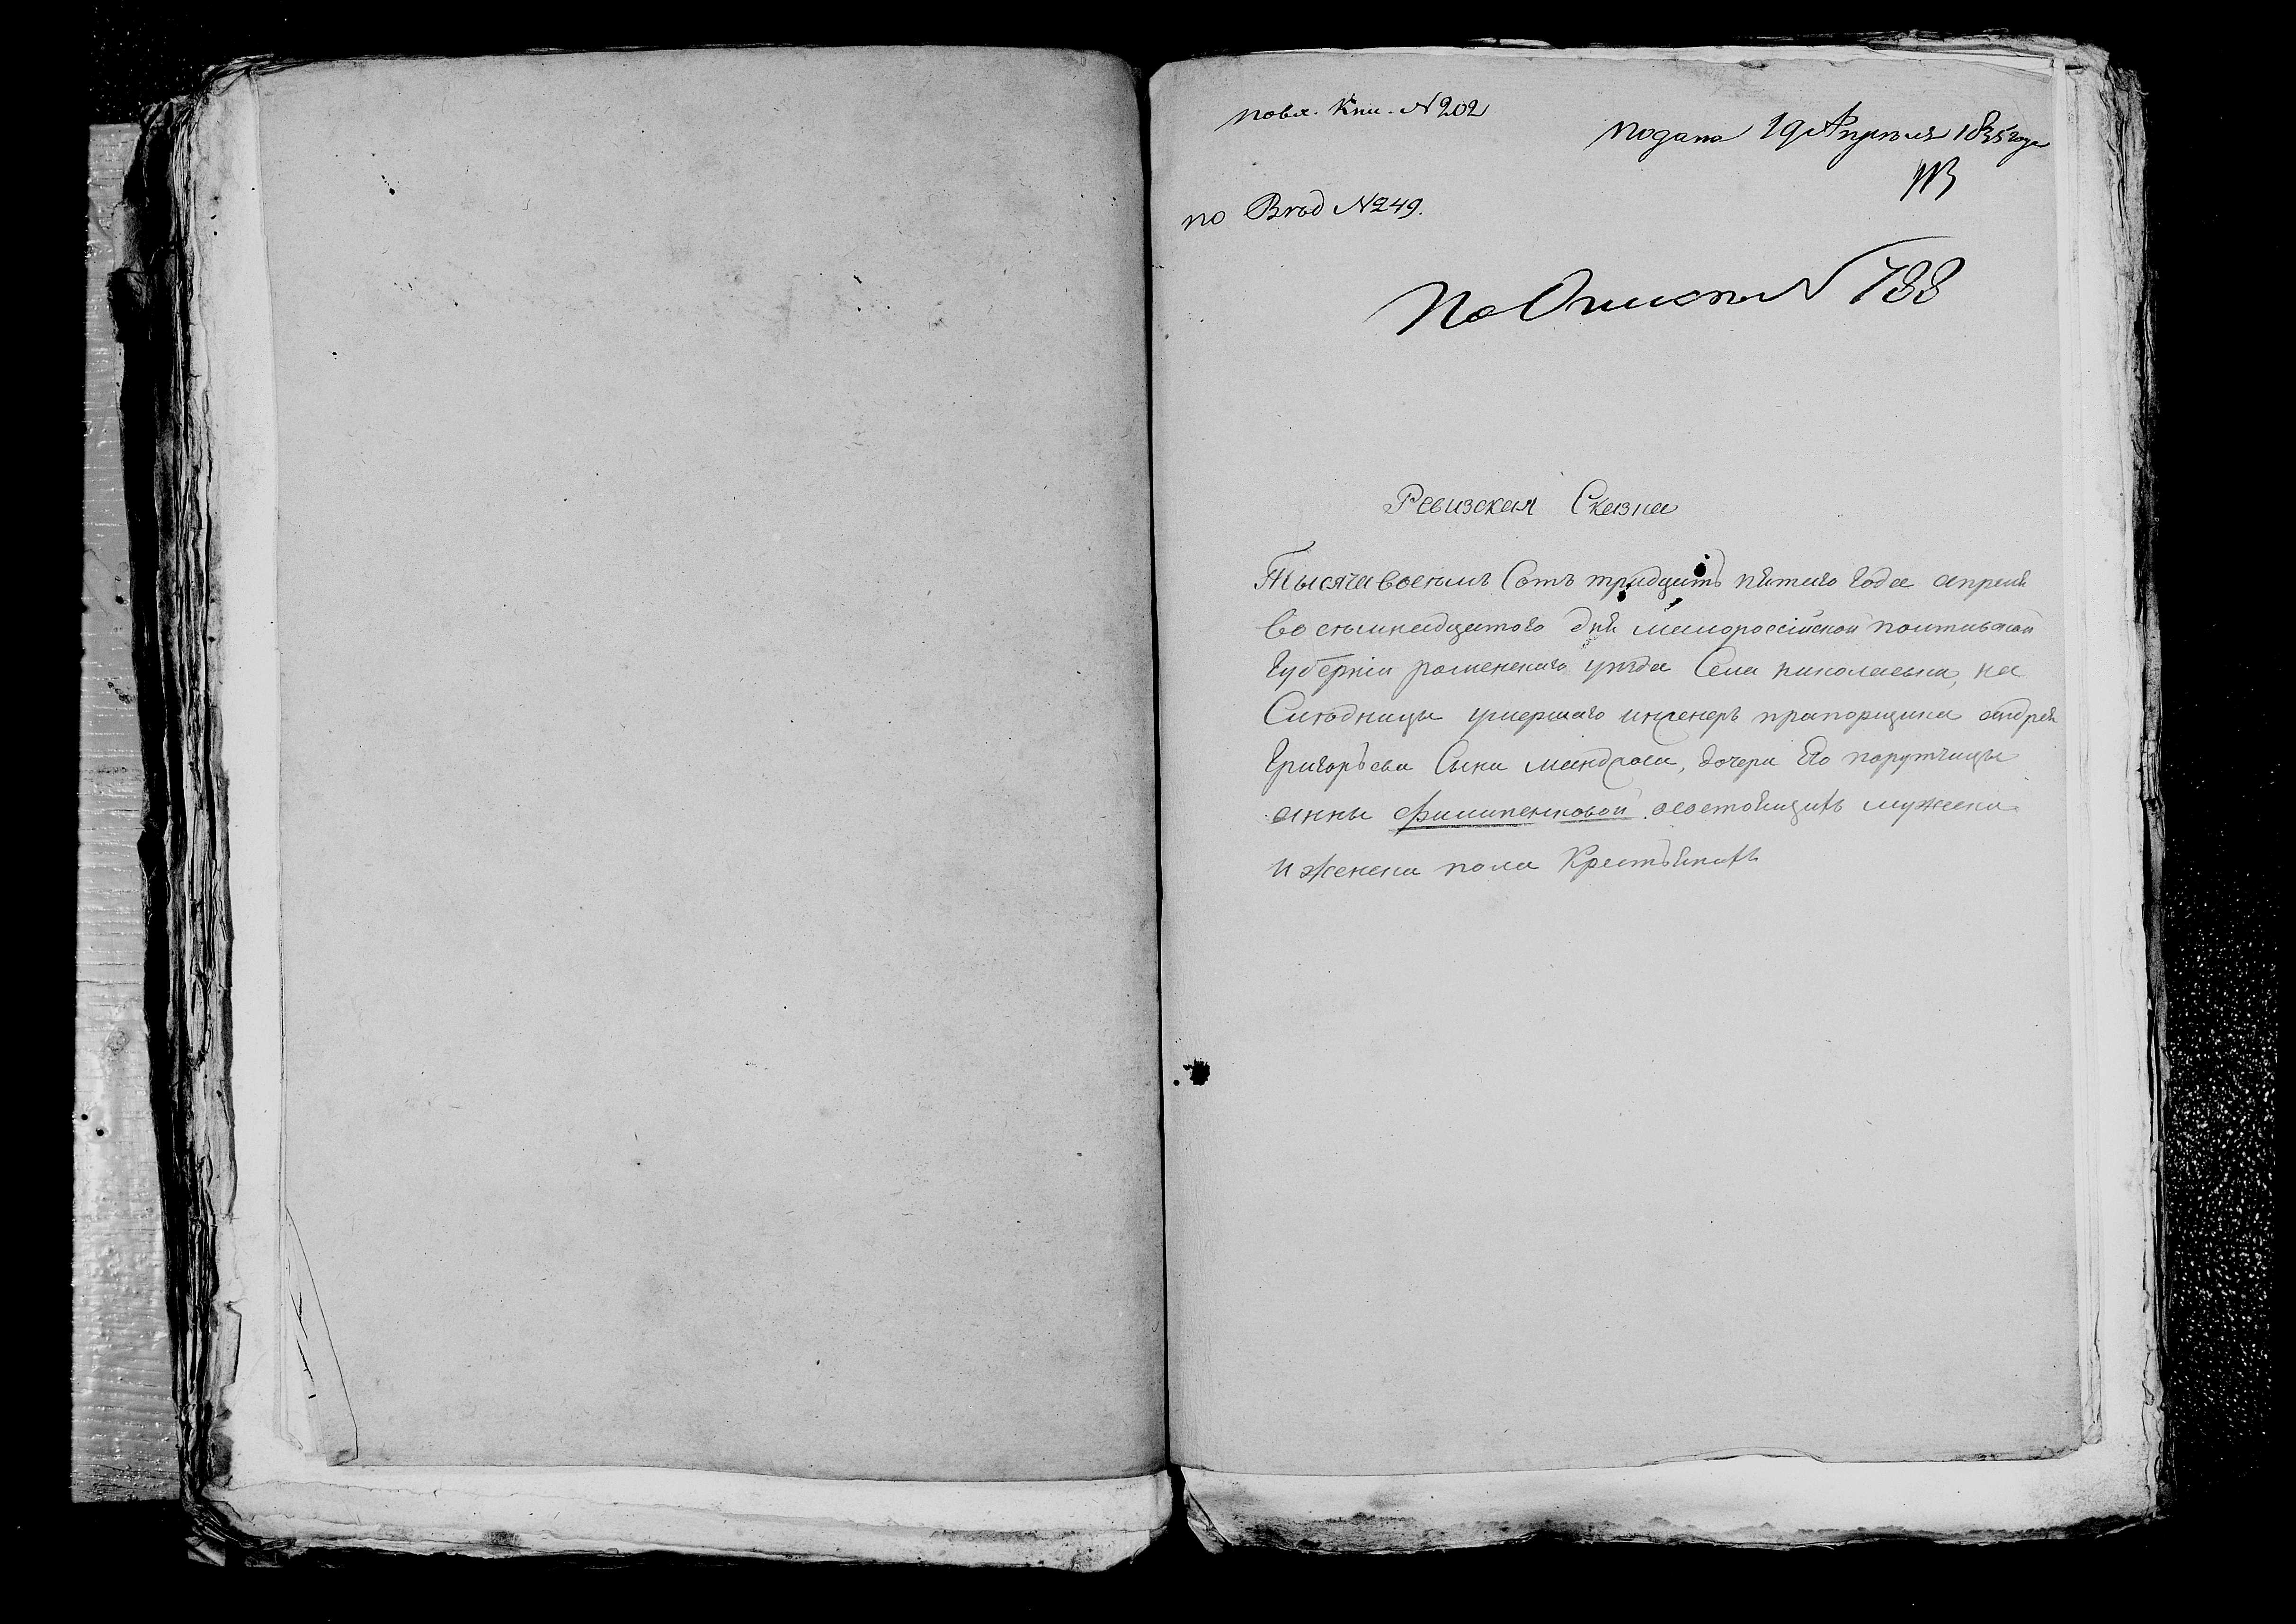 по вх. Кни. № 202
подана 19 Апреля 1835 года
по Вход № 249.
По Описи № 788
Ревизская Сказка
Тысяча восемь Сотъ тридцать пятаго Года апреля
восемнадцатого дня малороссійской полтавской
Губерніи роменскаго уѣзда Села николаевки, на
Слѣдницы умершаго инженеръ прапорщика андрея
Григорьева Сына мандроса, дочери Его порутчицы
анны филипенковой. осостоящихъ мужеска
и женска пола Крестьянахъ